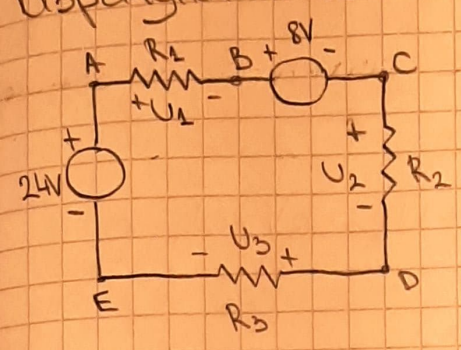 A R1 B + 8V - C
+ U1 -
+
24V
-
+
U2 R2
-
- U3 +
E R3 D